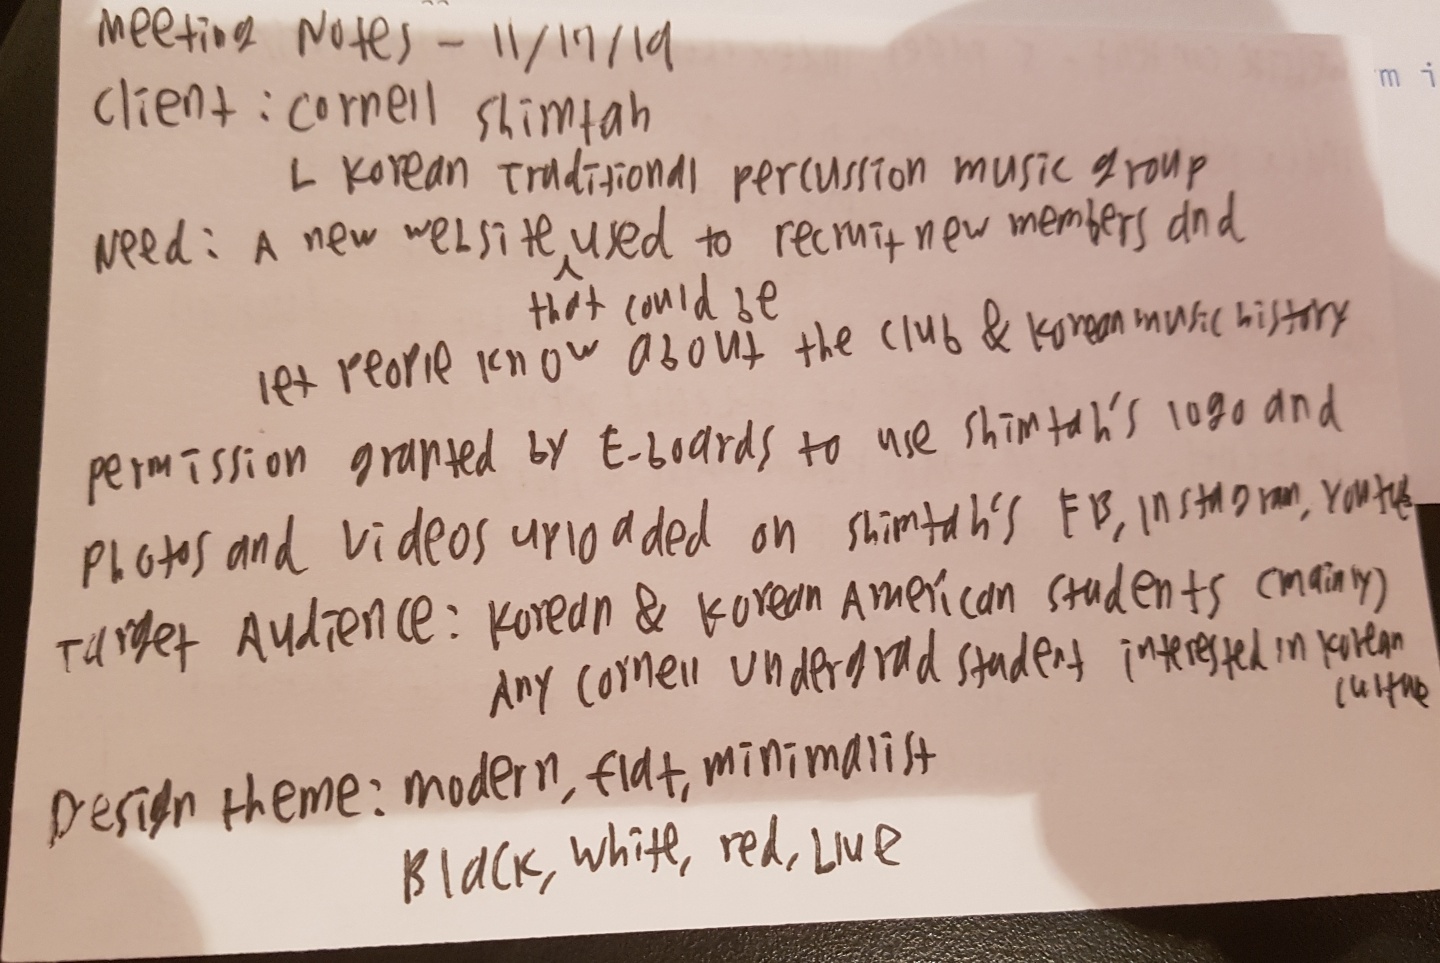 Meeting Notes - 11/17/19
Client: Cornell Shimtah
L Korean Traditional percussion music group
Need: A new website ^ used to recruit new members and
that could be
let people know about the club & Korean music history
permission granted by E-boards to use Shimtah's logo and
photos and videos uploaded on Shimtah's FB, Instagram, Youtube
Target Audience: Korean & Korean American students (mainly)
Any Cornell undergrad student interested in Korean
culture
Design theme: modern, flat, minimalist
Black, white, red, blue
m i